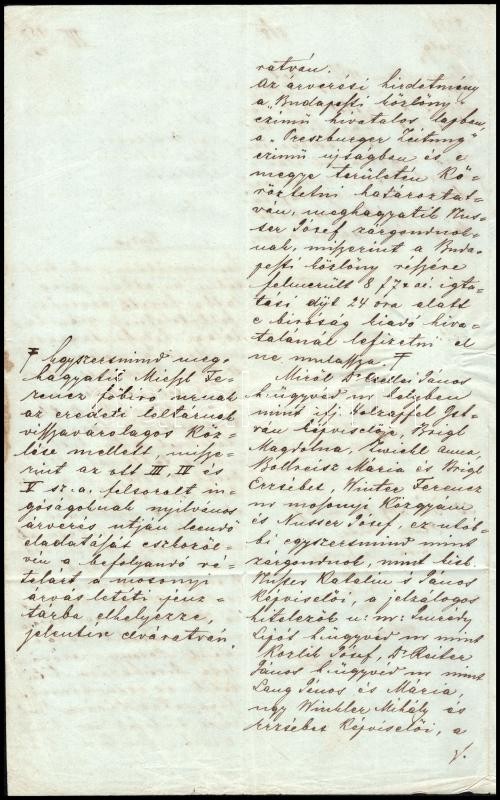 ratván.
Az árverési hirdetmény
a „Budapesti Közlöny"
czimű hivatalos lapban,
a „Preszburger Zeitung"
czimű ujságban és e
megye területén Kö-
röztetni határoztat-
ván, meghagyatik Nus-
ser József zárgondnok-
nak, miszerint a Buda-
pesti Közlöny részére
felmerült 8 f 7 x ai. igta-
tási díjt 24 óra alatt
e biróság kiadó hiva-
talánál lefizetni el
ne mulassza. ⌿
Miről Dr János
h. ügyvéd ur helyben
mint ifj. Holzapfel Ist-
ván képviselője, Weigl
Magdolna, anna,
Mária és Weigl
Erzsébet, Winter Ferencz
ur mosonyi Közgyám
és Nusser József, ez utób-
bi egyszersmind mint
zárgondnok, mint kisk.
Nusser Katalin s János
Képviselői, a jelzálogos
hitelezők u: m:
Lipót h. ügyvéd ur mint
József, Dr Reiter
János h. ügyvéd ur mint
Lang János és Mária,
ugy Winkler Mihály és
Erzsébet Képviselői, a
⌿ Egyszersmind meg-
hagyatik Fe-
rencz főbiró urnak
az eredeti leltárnak
visszavárólagos Köz-
lése mellett, misze-
rint az ott III, IV és
V sz. a. felsorolt in-
góságoknak nyilvános
árverés utján leendő
eladatását eszközöl-
vén a befolyandó vé-
telárt a mosonyi
árvás letéti pénz-
tárba elhelyezze,
jelentése elváratván.